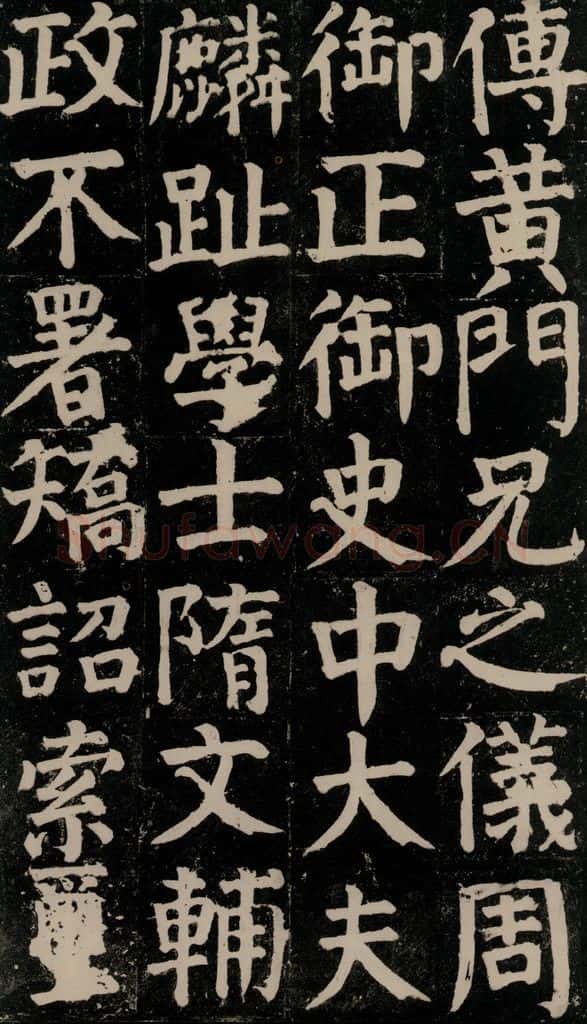 傳黄門兄之儀周
御正御史中大夫
麟趾學士隋文輔
政不署矯詔索璽
Shufawang.CN